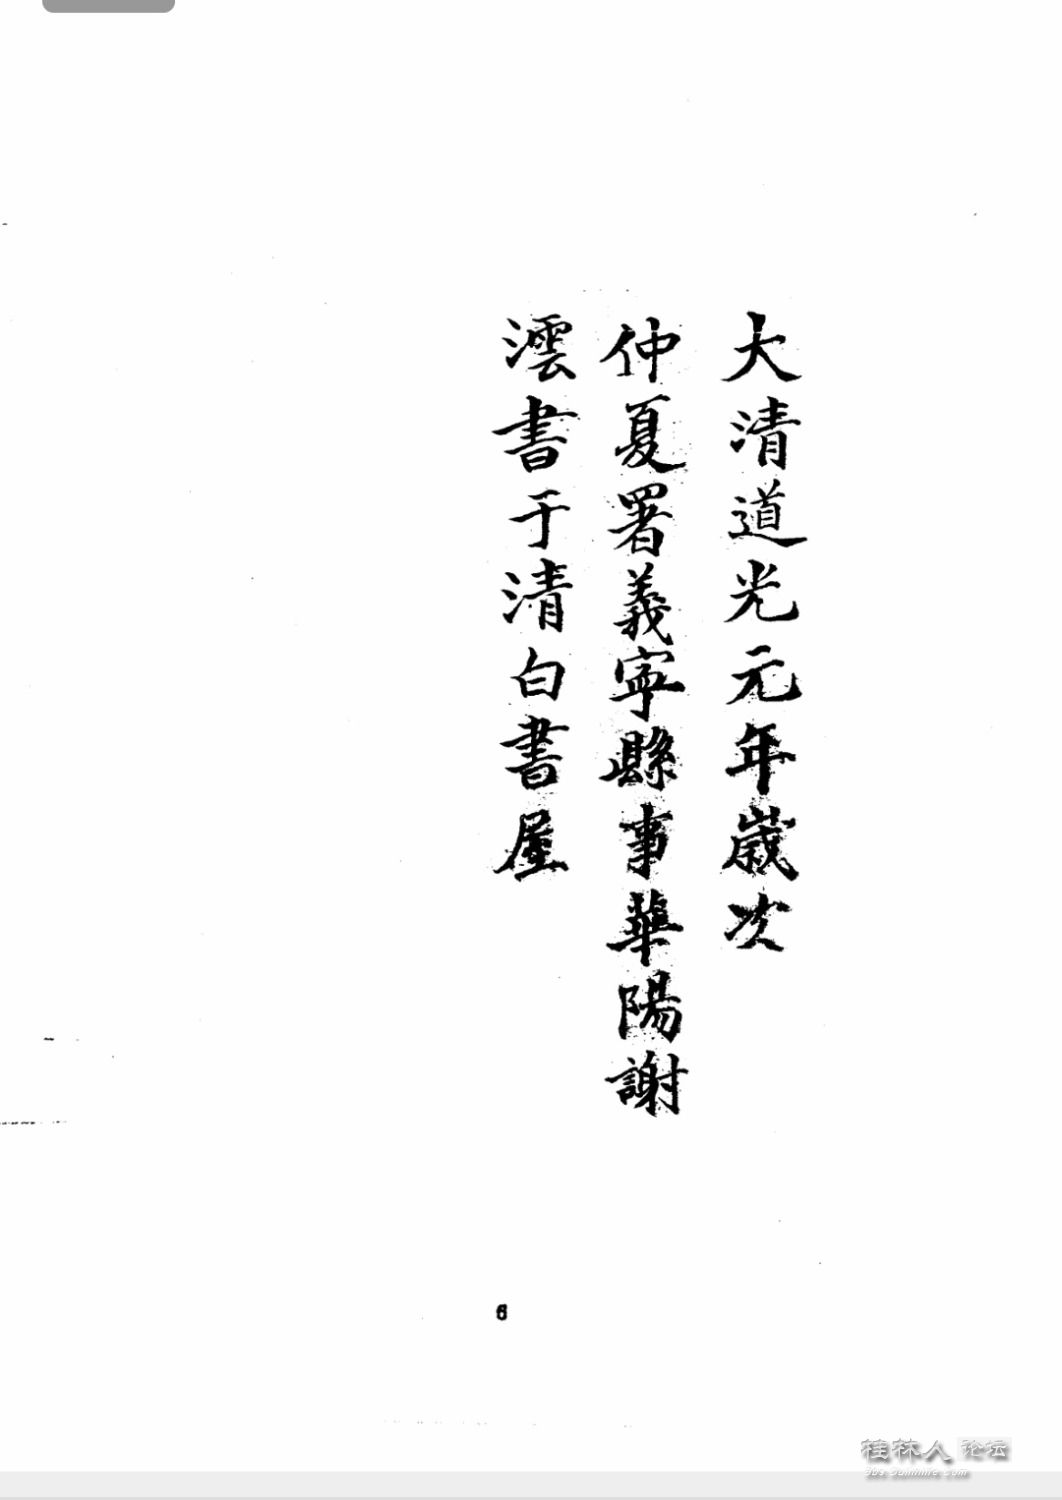 大清道光元年歲次
仲夏署義寧縣事華陽謝
澐書于清白書屋
6
桂林人论坛